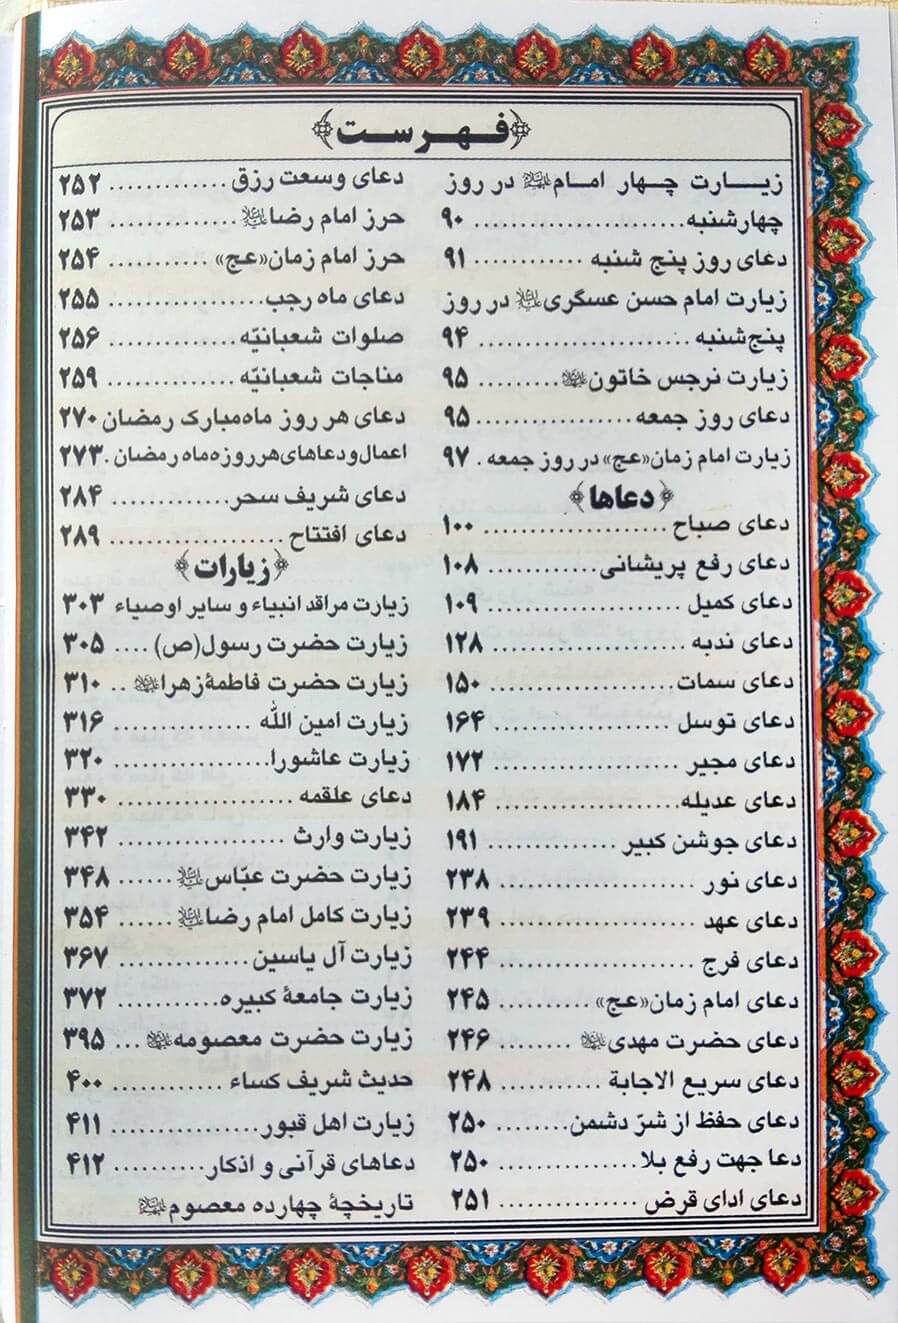 فهرست
زیارت چهار امام علیهم‌السلام در روز
چهارشنبه ...................... ۹۰
دعای روز پنج شنبه ............ ۹۱
زیارت امام حسن عسگری علیه‌السلام در روز
پنج‌شنبه ....................... ۹۴
زیارت نرجس خاتون ......... ۹۵
دعای روز جمعه ................. ۹۵
زیارت امام زمان«عج» در روز جمعه . ۹۷
دعاها
دعای صباح .................... ۱۰۰
دعای رفع پریشانی ............ ۱۰۸
دعای کمیل .................... ۱۰۹
دعای ندبه ..................... ۱۲۸
دعای سمات .................... ۱۵۰
دعای توسل .................... ۱۶۴
دعای مجیر .................... ۱۷۲
دعای عدیله .................... ۱۸۴
دعای جوشن کبیر .............. ۱۹۱
دعای نور ...................... ۲۳۸
دعای عهد ..................... ۲۳۹
دعای فرج ..................... ۲۴۴
دعای امام زمان«عج» .......... ۲۴۵
دعای حضرت مهدی ........ ۲۴۶
دعای سریع الاجابة ............ ۲۴۸
دعای حفظ از شرّ دشمن......... ۲۵۰
دعا جهت رفع بلا ............... ۲۵۰
دعای ادای قرض ............... ۲۵۱
دعای وسعت رزق ............. ۲۵۲
حرز امام رضا علیه‌السلام .............. ۲۵۳
حرز امام زمان«عج» ........... ۲۵۴
دعای ماه رجب ................ ۲۵۵
صلوات شعبانیّه ............... ۲۵۶
مناجات شعبانیّه ............... ۲۵۹
دعای هر روز ماه مبارک رمضان ۲۷۰
اعمال و دعاهای هر روزه ماه رمضان . ۲۷۳
دعای شریف سحر ............. ۲۸۴
دعای افتتاح ................... ۲۸۹
زیارات
زیارت مراقد انبیاء و سایر اوصیاء ۳۰۳
زیارت حضرت رسول(ص) .... ۳۰۵
زیارت حضرت فاطمهٔ زهرا .. ۳۱۰
زیارت امین الله ............... ۳۱۶
زیارت عاشورا ................ ۳۲۰
دعای علقمه ................... ۳۳۰
زیارت وارث ................... ۳۴۲
زیارت حضرت عبّاس علیه‌السلام ...... ۳۴۸
زیارت کامل امام رضا علیه‌السلام ...... ۳۵۴
زیارت آل یاسین ............... ۳۶۷
زیارت جامعهٔ کبیره ............ ۳۷۲
زیارت حضرت معصومه ... ۳۹۵
حدیث شریف کساء ............ ۴۰۰
زیارت اهل قبور ............... ۴۱۱
دعاهای قرآنی و اذکار .......... ۴۱۲
تاریخچهٔ چهارده معصوم